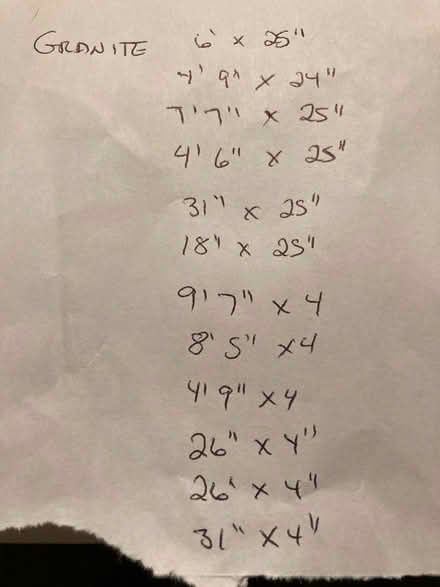 GRANITE 6' x 25"
4' 9" x 24"
7' 7" x 25"
4' 6" x 25"
31" x 25"
18" x 25"
9' 7" x 4
8' 5" x 4
4' 9" x 4
26" x 4"
26' x 4"
31" x 4"